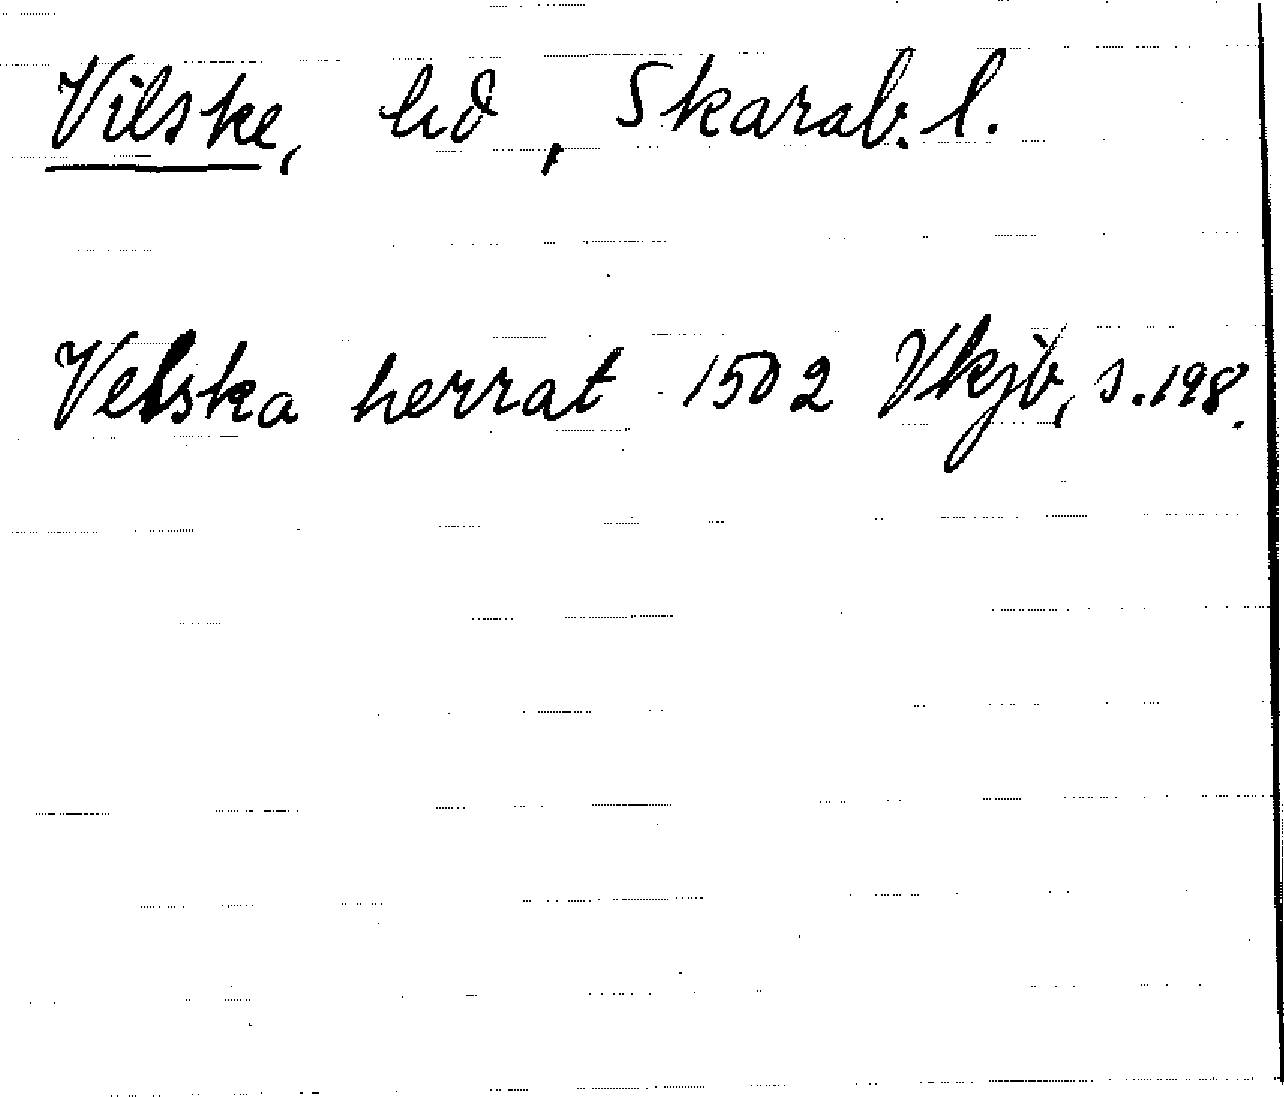 Vilske, hd, Skarab. l.
Velska herrat 1502 Vkjb, s. 198.